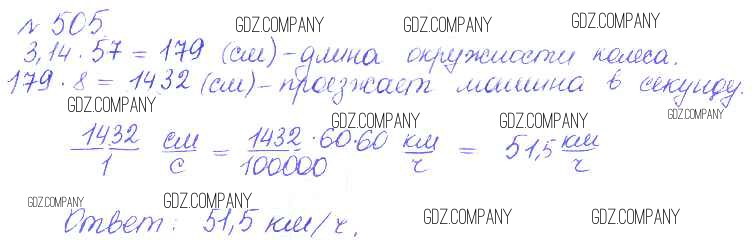 № 505
GDZ.COMPANY GDZ.COMPANY GDZ.COMPANY
3,14 · 57 = 179 (см) - длина окружности колеса.
179 · 8 = 1432 (см) - проезжает машина в секунду.
GDZ.COMPANY GDZ.COMPANY GDZ.COMPANY GDZ.COMPANY
1432/1 см/с = 1432 · 60 · 60/100000 км/ч = 51,5 км/ч
GDZ.COMPANY GDZ.COMPANY
Ответ: 51,5 км/ч.
GDZ.COMPANY GDZ.COMPANY